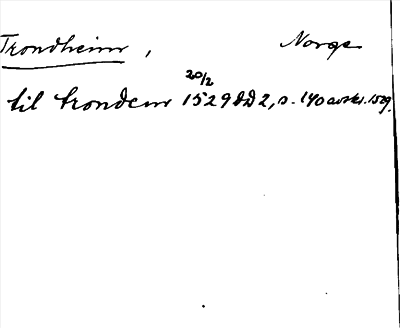 Trondheim, Norge
til trondem 20/2 1529 DD 2, s. 140 avskr. 1529.